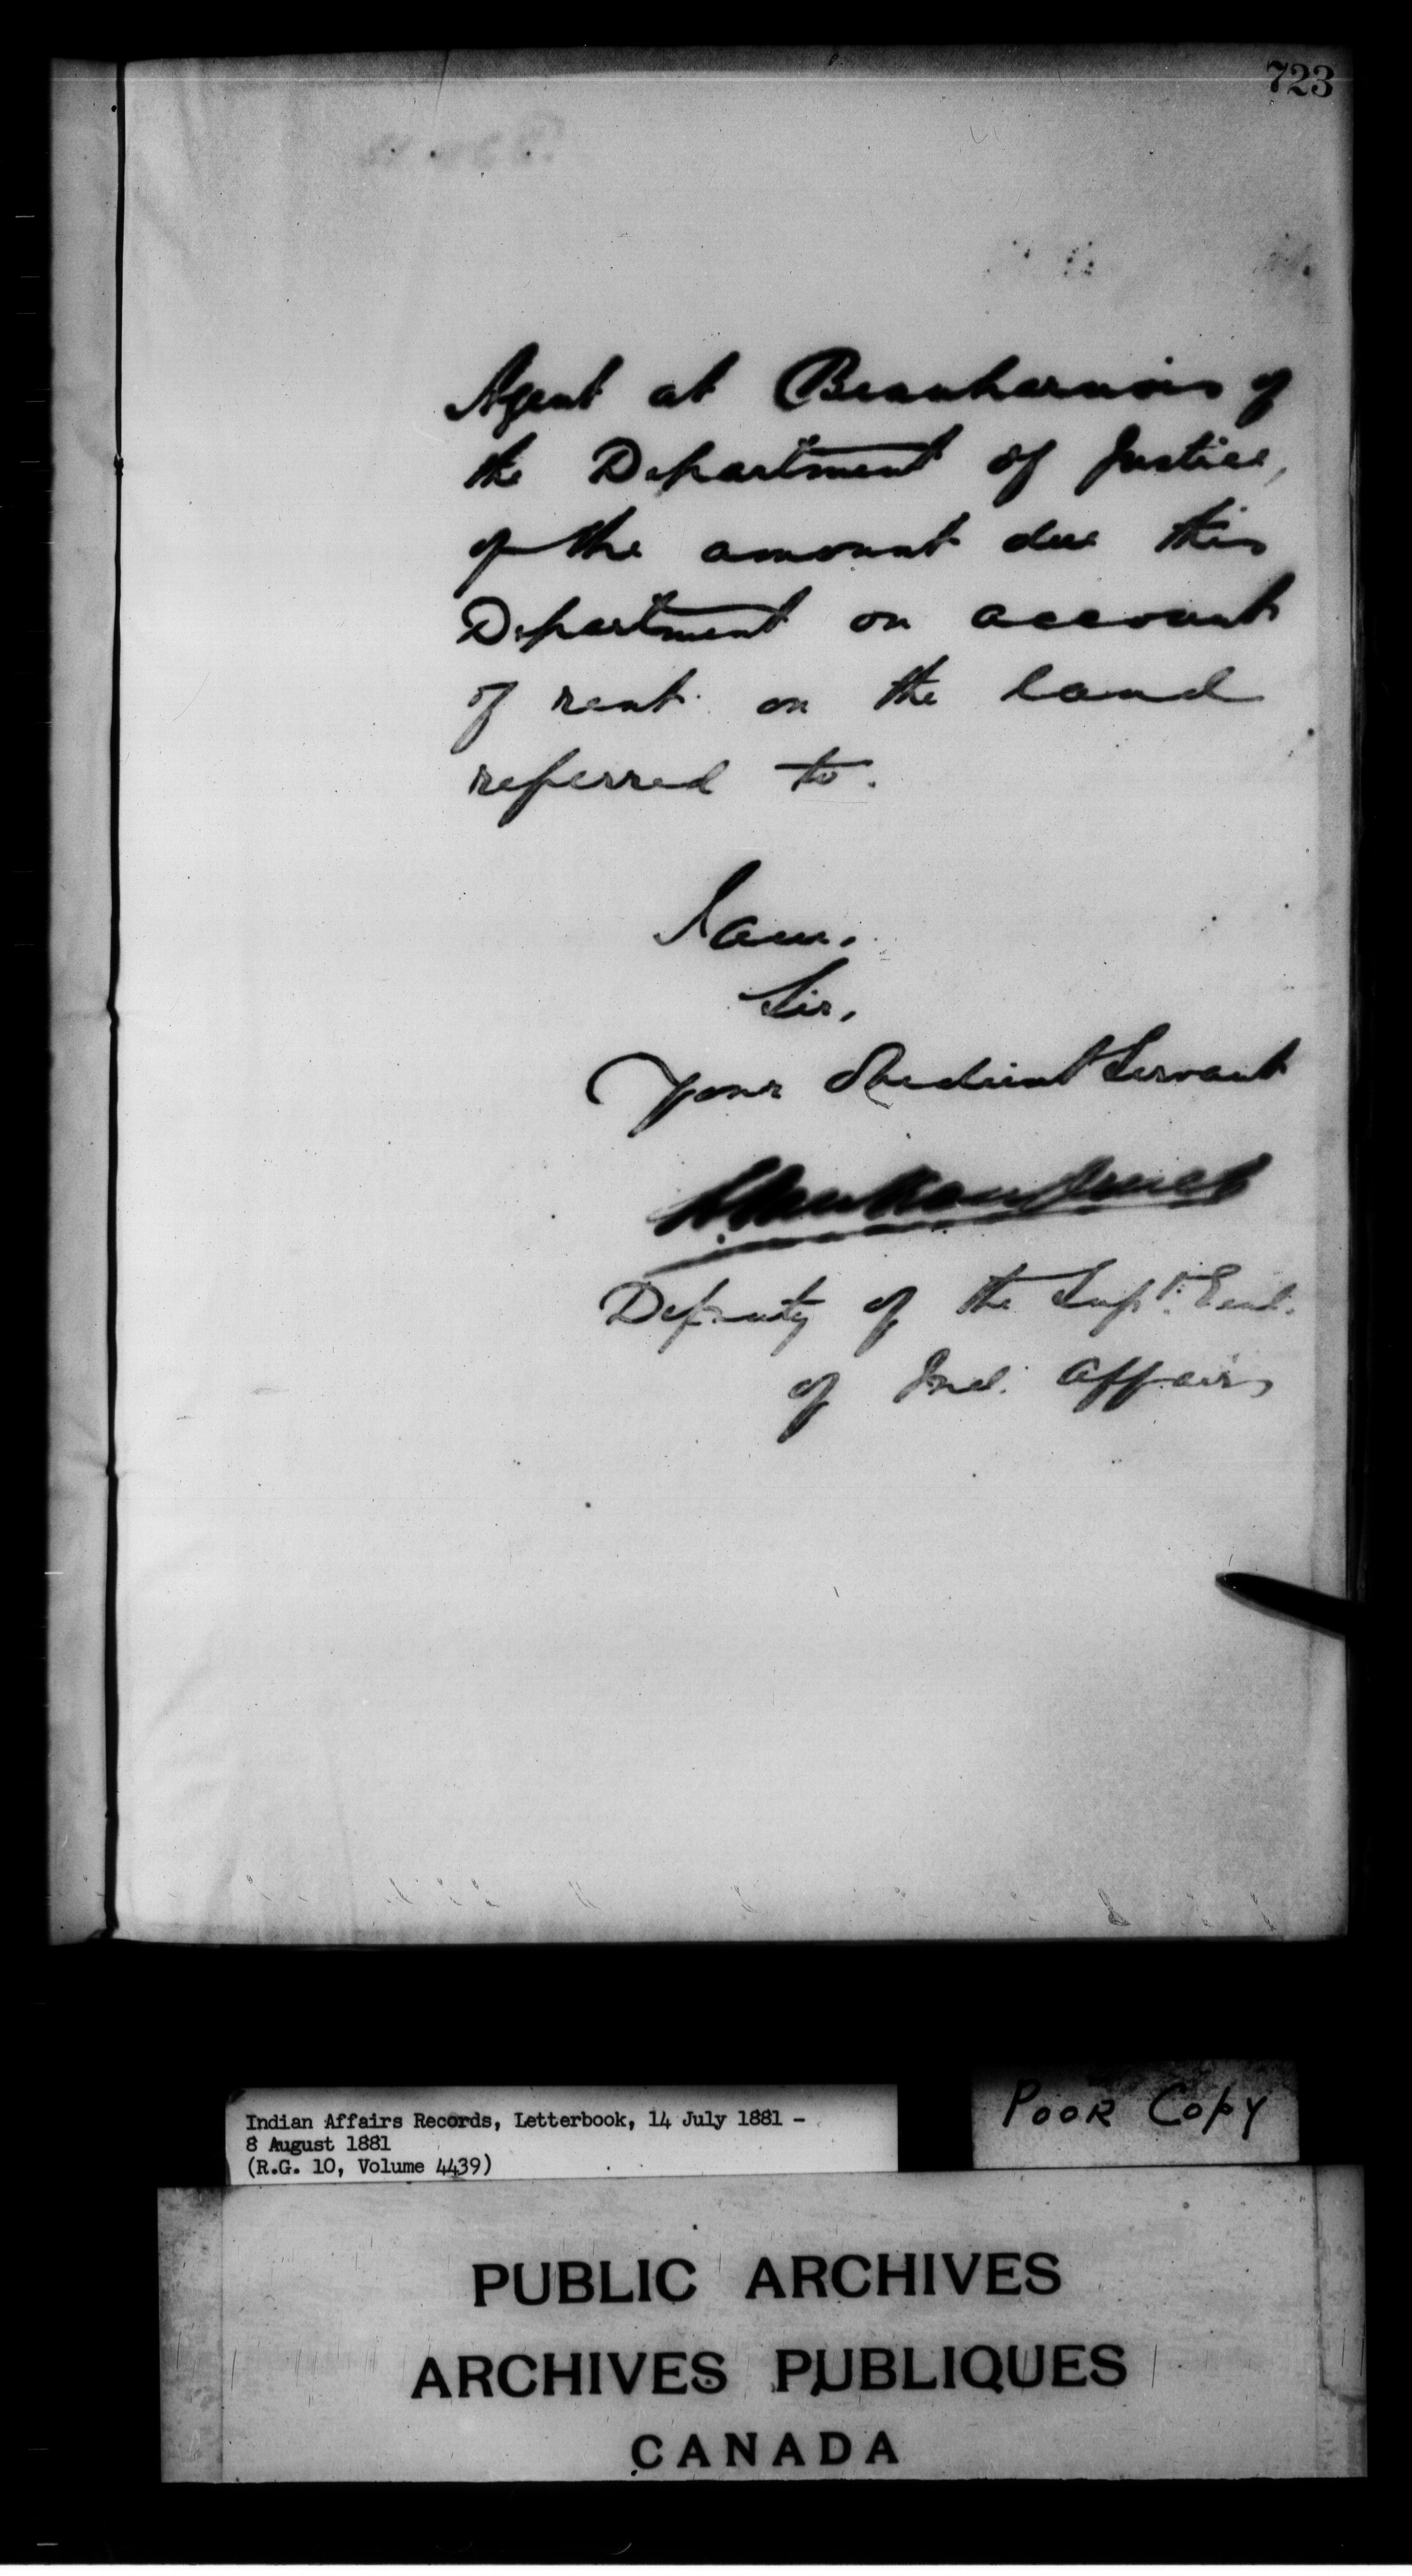 723
Agent at Beauharnois of
the Department of Justice,
of the amount due this
Department on account
of rent on the land
referred to.
I am,
Sir,
Your Obedient Servant
Deputy of the Supt. Genl.
of Ind. Affairs
Indian Affairs Records, Letterbook, 14 July 1881 -
8 August 1881
(R.G. 10, Volume 4439)
POOR COPY
PUBLIC ARCHIVES
ARCHIVES PUBLIQUES
CANADA